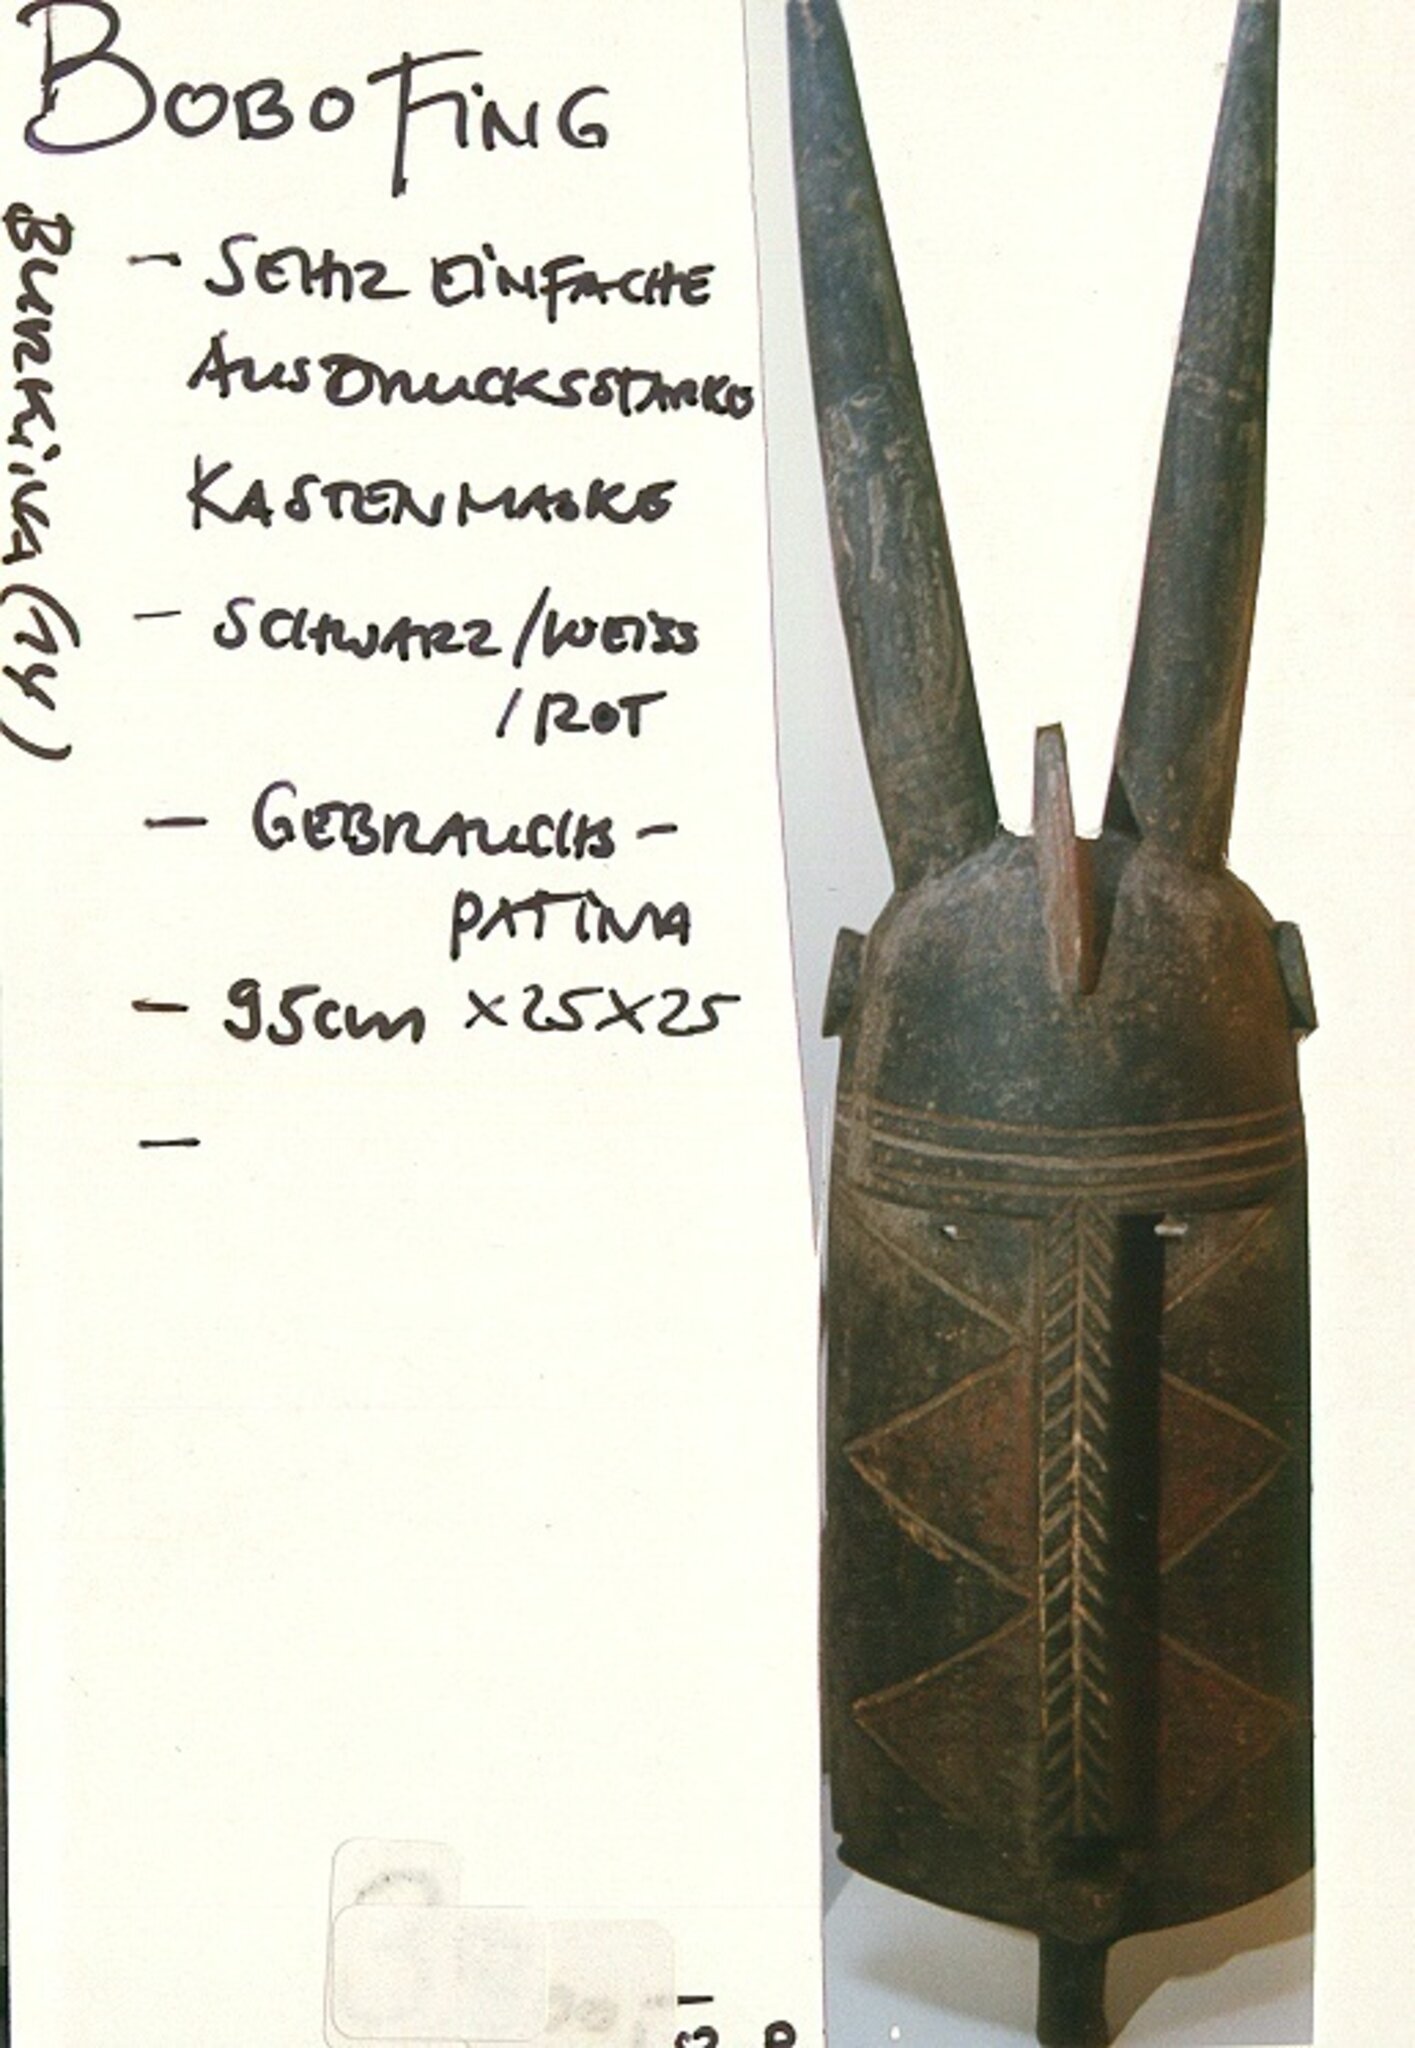 BOBO FING
Burkina (74)
- SEHR EINFACHE
AUSDRUCKSSTARKE
KASTENMASKE
- SCHWARZ/WEISS
/ROT
- GEBRAUCHS-
PATINA
- 95cm x25x25
-